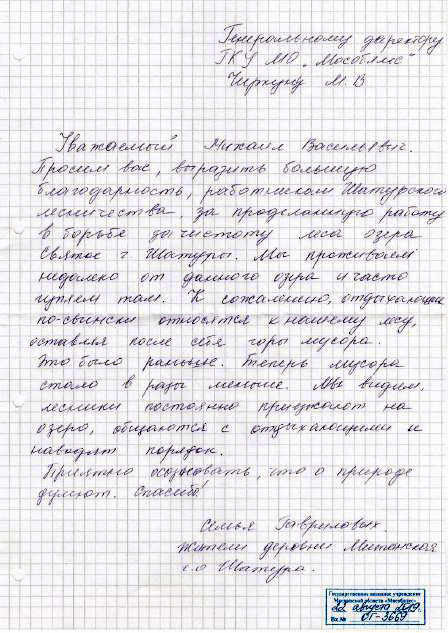 Генеральному директору
ГКУ МО „Мособллес"
Чиркуну М.В
Уважаемый Михаил Васильевич.
Просим вас, выразить большую
благодарность, работникам Шатурского
лесничества, за проделанную работу
в борьбе за чистоту леса озера
Святое г. Шатуры. Мы проживаем
недалеко от данного озера и часто
гуляем там. К сожалению, отдыхающие
по-свински относятся к нашему лесу,
оставляя после себя горы мусора.
Это было раньше. Теперь мусора
стало в разы меньше. Мы видим,
лесники постоянно приезжают на
озеро, общаются с отдыхающими и
наводят порядок.
Приятно осознавать, что о природе
думают. Спасибо!
Семья Гавриловых.
жители деревни Митинская
г.о Шатура.
Государственное казенное учреждение
Московской области «Мособллес»
22 августа 2019г.
Вх № ОГ-3669